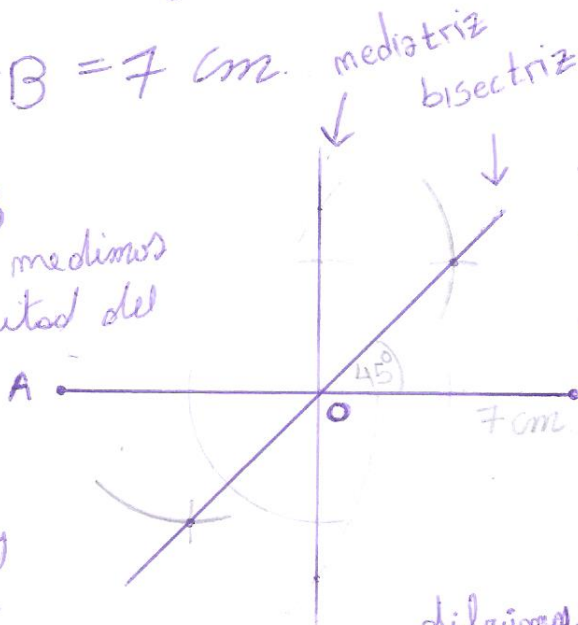 B = 7 cm.
mediatriz
bisectriz
medimos
del
A
45°
O
7 cm